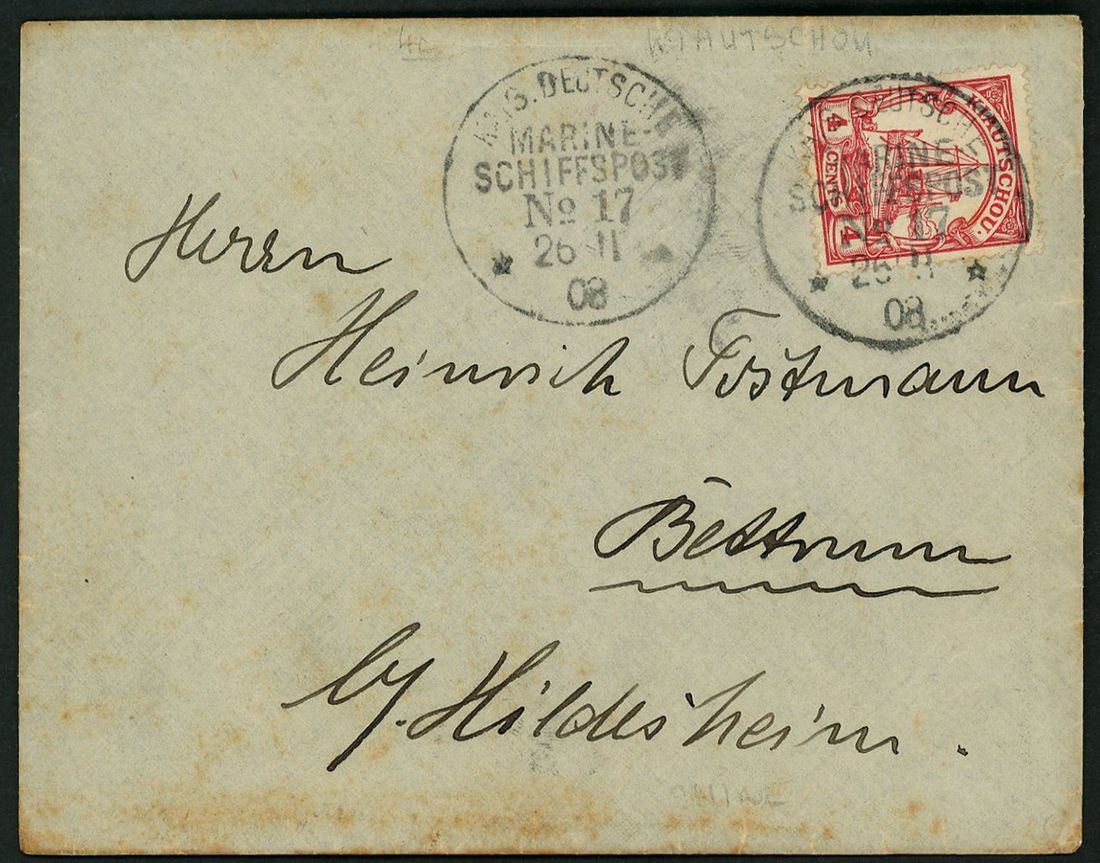 4c KIAUTSCHOU
KAIS. DEUTSCHE
MARINE-
SCHIFFSPOST
No 17
26 11
08
KAIS. DEUTSCHE
MARINE-
SCHIFFSPOST
No 17
26 11
08
KIAUTSCHOU.
4 CENTS 4
Herrn
Heinrich Tostmann
Bettrum
b/. Hildesheim.